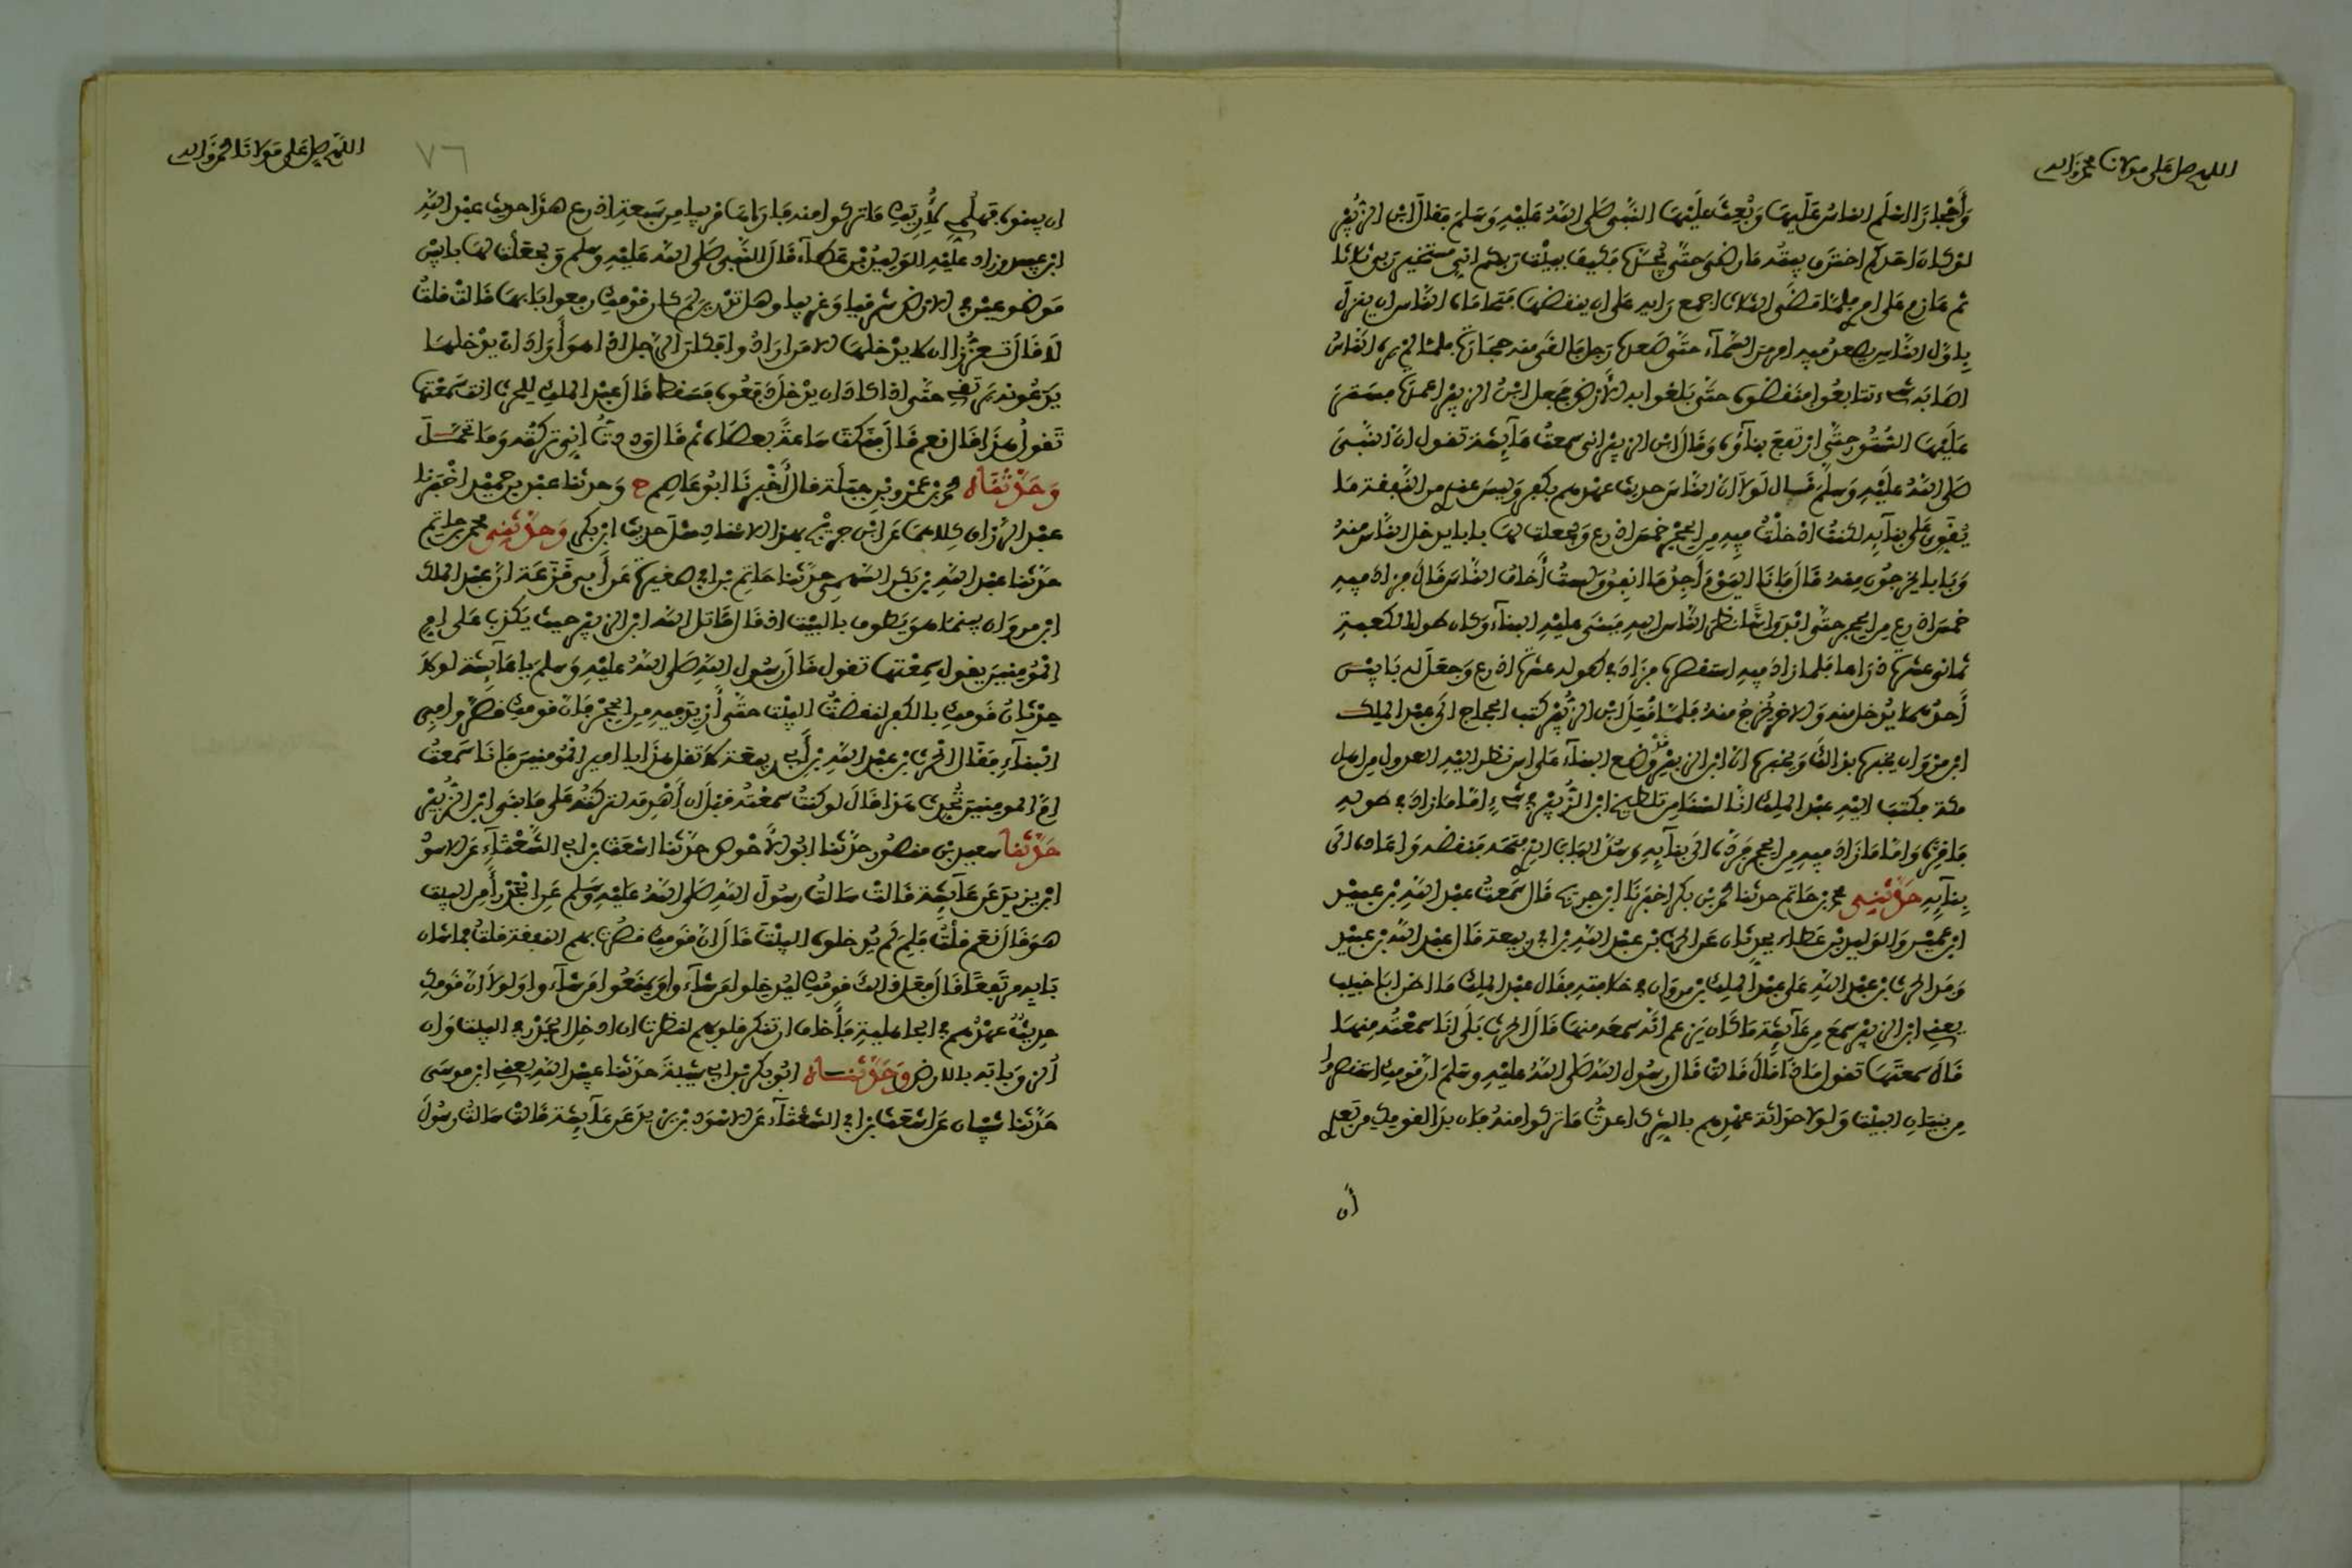 اللهم صل على مولانا محمد وآله
وَأَحْجارًا اسْلَم الناسُ عَلَيهَا وَبُعِثَ عَلَيْهَا النَّبِي صَلى اللهُ عَلَيْهِ وَسَلم فقال ابن الزُّبَيْر
لَوْ كانَ احَدكم احْتَرق بيتُه مَا رَضِيَ حَتَّى يُجِدَّه فكيف ببيْت ربكم اني مستخير ربي ثلاثا
ثم عَازم على امري فلمّا مَضَى الثلاث اجمع رَايه على ان ينقضهَا فتحاماه الناس ان ينزل
بِأول الناسِ يصعدُ فيه امر مِن السَّمَاء حتّى صَعده رَجل فالقَى منه حجَارَة فلمّا لم يره الناسُ
اصَابَه شيء تتابعُوا فنقضوه حتّى بَلغوا به الأرض فجعل ابنُ الزبير اعمدة فستر
عَليْهَا السُّتُور حتَّى ارتفعَ بناؤُه وَقَالَ ابن الزبير اني سمعتُ عَآيِشَة تقول ان النبي
صَلى اللهُ عَليْهِ وَسَلمَ قَال لَولا انّ الناسَ حديث عهدهم بكفر وَليسَ عندي من النَّفقة مَا
يُقَوِّي عَلى بنآيِه لكنتُ ادْخلْتُ فيهِ مِن الحِجْرِ خمسَ اذرع وَلجعلت لهَا بابا يدخل الناس منهُ
وَبَابا يخرجُون مِنهُ قالَ فَانَا اليَوْم أَجِدُ مَا انفِقُ وَلستُ أَخافُ الناسَ قَالَ فزادَ فيهِ
خمسَ اذرع مِن الحجر حتّى ابْدَى اسًّا نظر الناس اليهِ فَبَنَى عليْهِ البنآءَ وَكان طول الكعبةِ
ثماني عشرة ذرَاعا فلما زادَ فيهِ استقصره فزَادَ في طوله عشرَةَ اذرع وَجعَلَ له بَابيْن
أَحدُهمَا يُدْخل منه وَالاخر يُخرجُ منهُ فلمّا قُتِلَ ابن الزُّبَيْر كتبَ الحجاج الى عبد الملِك
ابن مرْوَان يخبره بذالكَ وَيخبره انّ ابنَ الزبيْر قد وَضع البنآءَ على اس نظر اليْهِ العدول من اهل
مكة فكتبَ اليْهِ عبْد الملِك انّا لسْنَا مِن تلطيخ ابن الزُّبَيْر في شيءٍ امّا مَا زادَ في طولِهِ
فَاقِرَّه وَامّا مَا زادَ فيهِ مِن الحجر فَردَّه الى بنآيِهِ وَسُدَّ البَاب الذي فتحَه فنقضه وَاعَادَه الى
بِنآيِه حَدَّثَنِي محمد بن حَاتم حدثنا محمد بن بكر اخبَرَنا ابن جريج قال سَمعتُ عبْد الله بْن عبيْد
ابن عميْر وَالوَليد بْن عَطاء يحدِثان عَن الحرث بن عبْد اللهِ بن ابي ربيعة قالَ عبْد اللهِ بن عبيْد
وَفدَ الحرث بن عبْد اللهِ على عبْدِ الملِك بْن مروَان في خلافتِهِ فقال عبْد الملِك مَا اظن ابَا خبيب
يعني ابن الزبير سمعَ مِن عَآيِشَة مَا كان يَزعم انّه سمعَه منهَا قالَ الحرث بَلَى انَا سمعْتُه مِنهَا
قالَ سمعتَهَا تقول مَاذَا قالَ قالتْ قالَ رسُول اللهِ صَلى اللهُ عليْهِ وَسَلم ان قومكِ استقصروا
مِن بنيَانِ البيْت وَلَولا حَدَاثة عهْدِهم بالشِّرك اعدتُ مَا تركوا منهُ فان بدَا لقومكِ من بَعدي
أن
اللهم صل على مولانا محمد وآله
٧٦
ان يبنوه فهلُمِّي لأُرِيَكِ مَا تركوا منه فاراهَا قريبا من سَبعَةِ اذرع هذَا حديث عبْد اللهِ
ابن عبيد وزاد عليْهِ الوليدُ بْن عَطاء قالَ النَّبي صَلى الله عَليْهِ وَسلم وَلجعلْتُ لهَا بابيْن
مَوضوعيْن في الأرض شرقيا وَغربيا وهل تدْرِينَ لِمَ كان قوْمكِ رفعوا بَابهَا قالتْ قلتُ
لا قالَ تعزُّزًا ان لا يدْخلهَا الا مَن ارَادُوا فكان الرجل اذا هوَ أَرَادَ ان يدْخلهَا
يدَعُونه يَرتقِي حتّى اذا كادَ ان يدْخل دَفعُوه فسَقط قالَ عبْد الملِك للحرث انت سَمعتهَا
تقولُ هذَا قالَ نعم قالَ فنكتَ سَاعةً بعصَاه ثم قال وَددتُ انِي تركتُه وَمَا تحمَّلَ
وَحَدَّثَنَاه محمد بن عَمْرو بْنِ جبَلة قال أَخْبرنَا ابُو عَاصِم ح وَحدثنا عبْد بن حميْد اخْبَرَنا
عبْد الرزاق كِلاهمَا عَن ابْن جريْج بهذا الاسناد مثلَ حديث ابْن بكر وَحَدَّثَنِي محمد بن حاتم
حدَّثنا عبْد اللهِ بن بَكر السَّهمي حدَّثنا حَاتم بن ابي صغيرة عَن أَبي قزَعَة انّ عبْد الملك
ابن مروَان بينمَا هوَ يَطوف بالبيْت اذ قال قاتل الله ابن الزبير حيث يَكذب عَلى ام
المُؤْمنِينَ يقول سمِعْتها تقول قالَ رسُول اللهِ صَلى اللهُ عليْهِ وَسلم يا عَآيِشَة لولا
حِدْثانُ قومكِ بالكفر لنقضتُ البيْت حتَّى أَزِيدَ فيهِ مِن الحِجْر فإن قومكِ قصَّروا في
البنآء فقال الحرث بن عبْد اللهِ بن أَبي ربيعة لا تقل هذَا يا امير المُؤْمنينَ فانَا سَمعتُ
امّ المومنينَ تحدث هَذا قالَ لو كنتُ سمعْتُه قبْلَ ان أَهْدمَه لتركتُه على مَا بنَى ابن الزُّبَيْر
حَدَّثَنَا سعيد بْن منصُور حدَّثنا ابُو الأَحْوص حدَّثنا اشعَث بن ابي الشعْثآءِ عَن الاسوَد
ابن يزيدَ عَن عَآيِشَة قالتْ سَالتُ رسُولَ اللهِ صَلى اللهُ عليْهِ وَسَلم عَنِ الْجَدْرِ أَمِن البيْت
هوَ قالَ نعَم قلْتُ فلِمَ لم يُدخلوه البيْت قالَ انّ قوْمكِ قصُرَت بهم النفقة قلتُ فما شان
بَابِه مرتَفِعًا قالَ فعَل ذالك قومُكِ ليُدْخِلوا مَن شآءُوا وَيمنعُوا مَن شآءُوا وَلولا انّ قومكِ
حدِيثٌ عهدُهم في الجاهليةِ فأَخاف ان تنكر قلوبهم لنظرت ان ادخل الجَدْر في البيْت وَان
أُلزِقَ بابه بالارض وَحَدَّثَنَاهُ ابُو بكر بْن ابي شيبةَ حدَّثنا عبيْد اللهِ يعني ابن موسَى
حَدَّثنا شيْبَان عَن اشعَث بن ابي الشعْثآءِ عَن الاسْوَد بْن يزيدَ عَن عَآيِشَة قالتْ سَالتُ رسُولَ